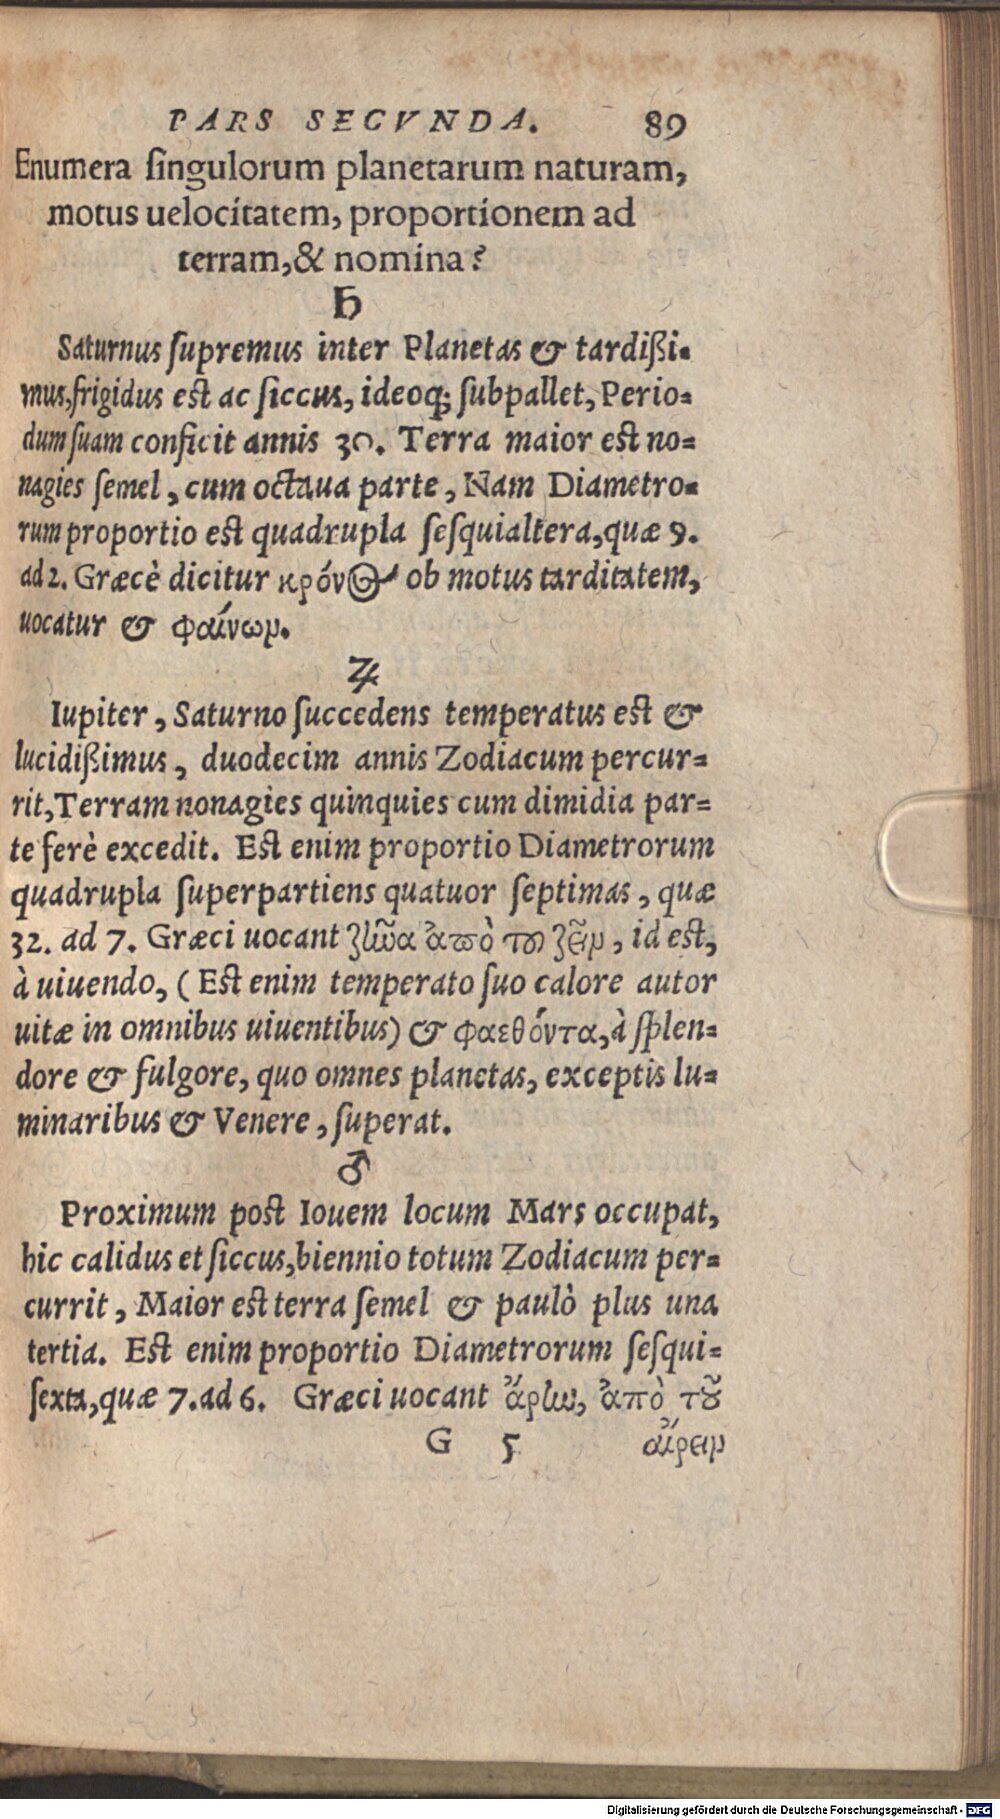 PARS SECVNDA. 89
Enumera singulorum planetarum naturam,
motus uelocitatem, proportionem ad
terram, & nomina?
♄
Saturnus ſupremus inter Planetas & tardißi-
mus, frigidus est ac ſiccus, ideoq; ſubpallet, Perio-
dum ſuam conficit annis 30. Terra maior est no-
nagies ſemel, cum octaua parte, Nam Diametro-
rum proportio est quadrupla ſeſquialtera, quæ 9.
ad 2. Græcè dicitur κρόνος ob motus tarditatem,
uocatur & φαίνωμ.
♃
Iupiter, Saturno ſuccedens temperatus est &
lucidißimus, duodecim annis Zodiacum percur-
rit, Terram nonagies quinquies cum dimidia par-
te ferè excedit. Est enim proportio Diametrorum
quadrupla ſuperpartiens quatuor ſeptimas, quæ
32. ad 7. Græci uocant ζῶα ἀπὸ τ ζῆμ, id est,
à uiuendo, (Est enim temperato ſuo calore autor
uitæ in omnibus uiuentibus) & φαεθόντα, à ſplen-
dore & fulgore, quo omnes planetas, exceptis lu-
minaribus & Venere, ſuperat.
♂
Proximum post Iouem locum Mars occupat,
hic calidus et ſiccus, biennio totum Zodiacum per-
currit, Maior est terra ſemel & paulò plus una
tertia. Est enim proportio Diametrorum ſeſqui-
ſexta, quæ 7. ad 6. Græci uocant ἄρω, ἀπὸ τȣ͂
G 5 αἴρειμ
Digitalisierung gefördert durch die Deutsche Forschungsgemeinschaft - DFG